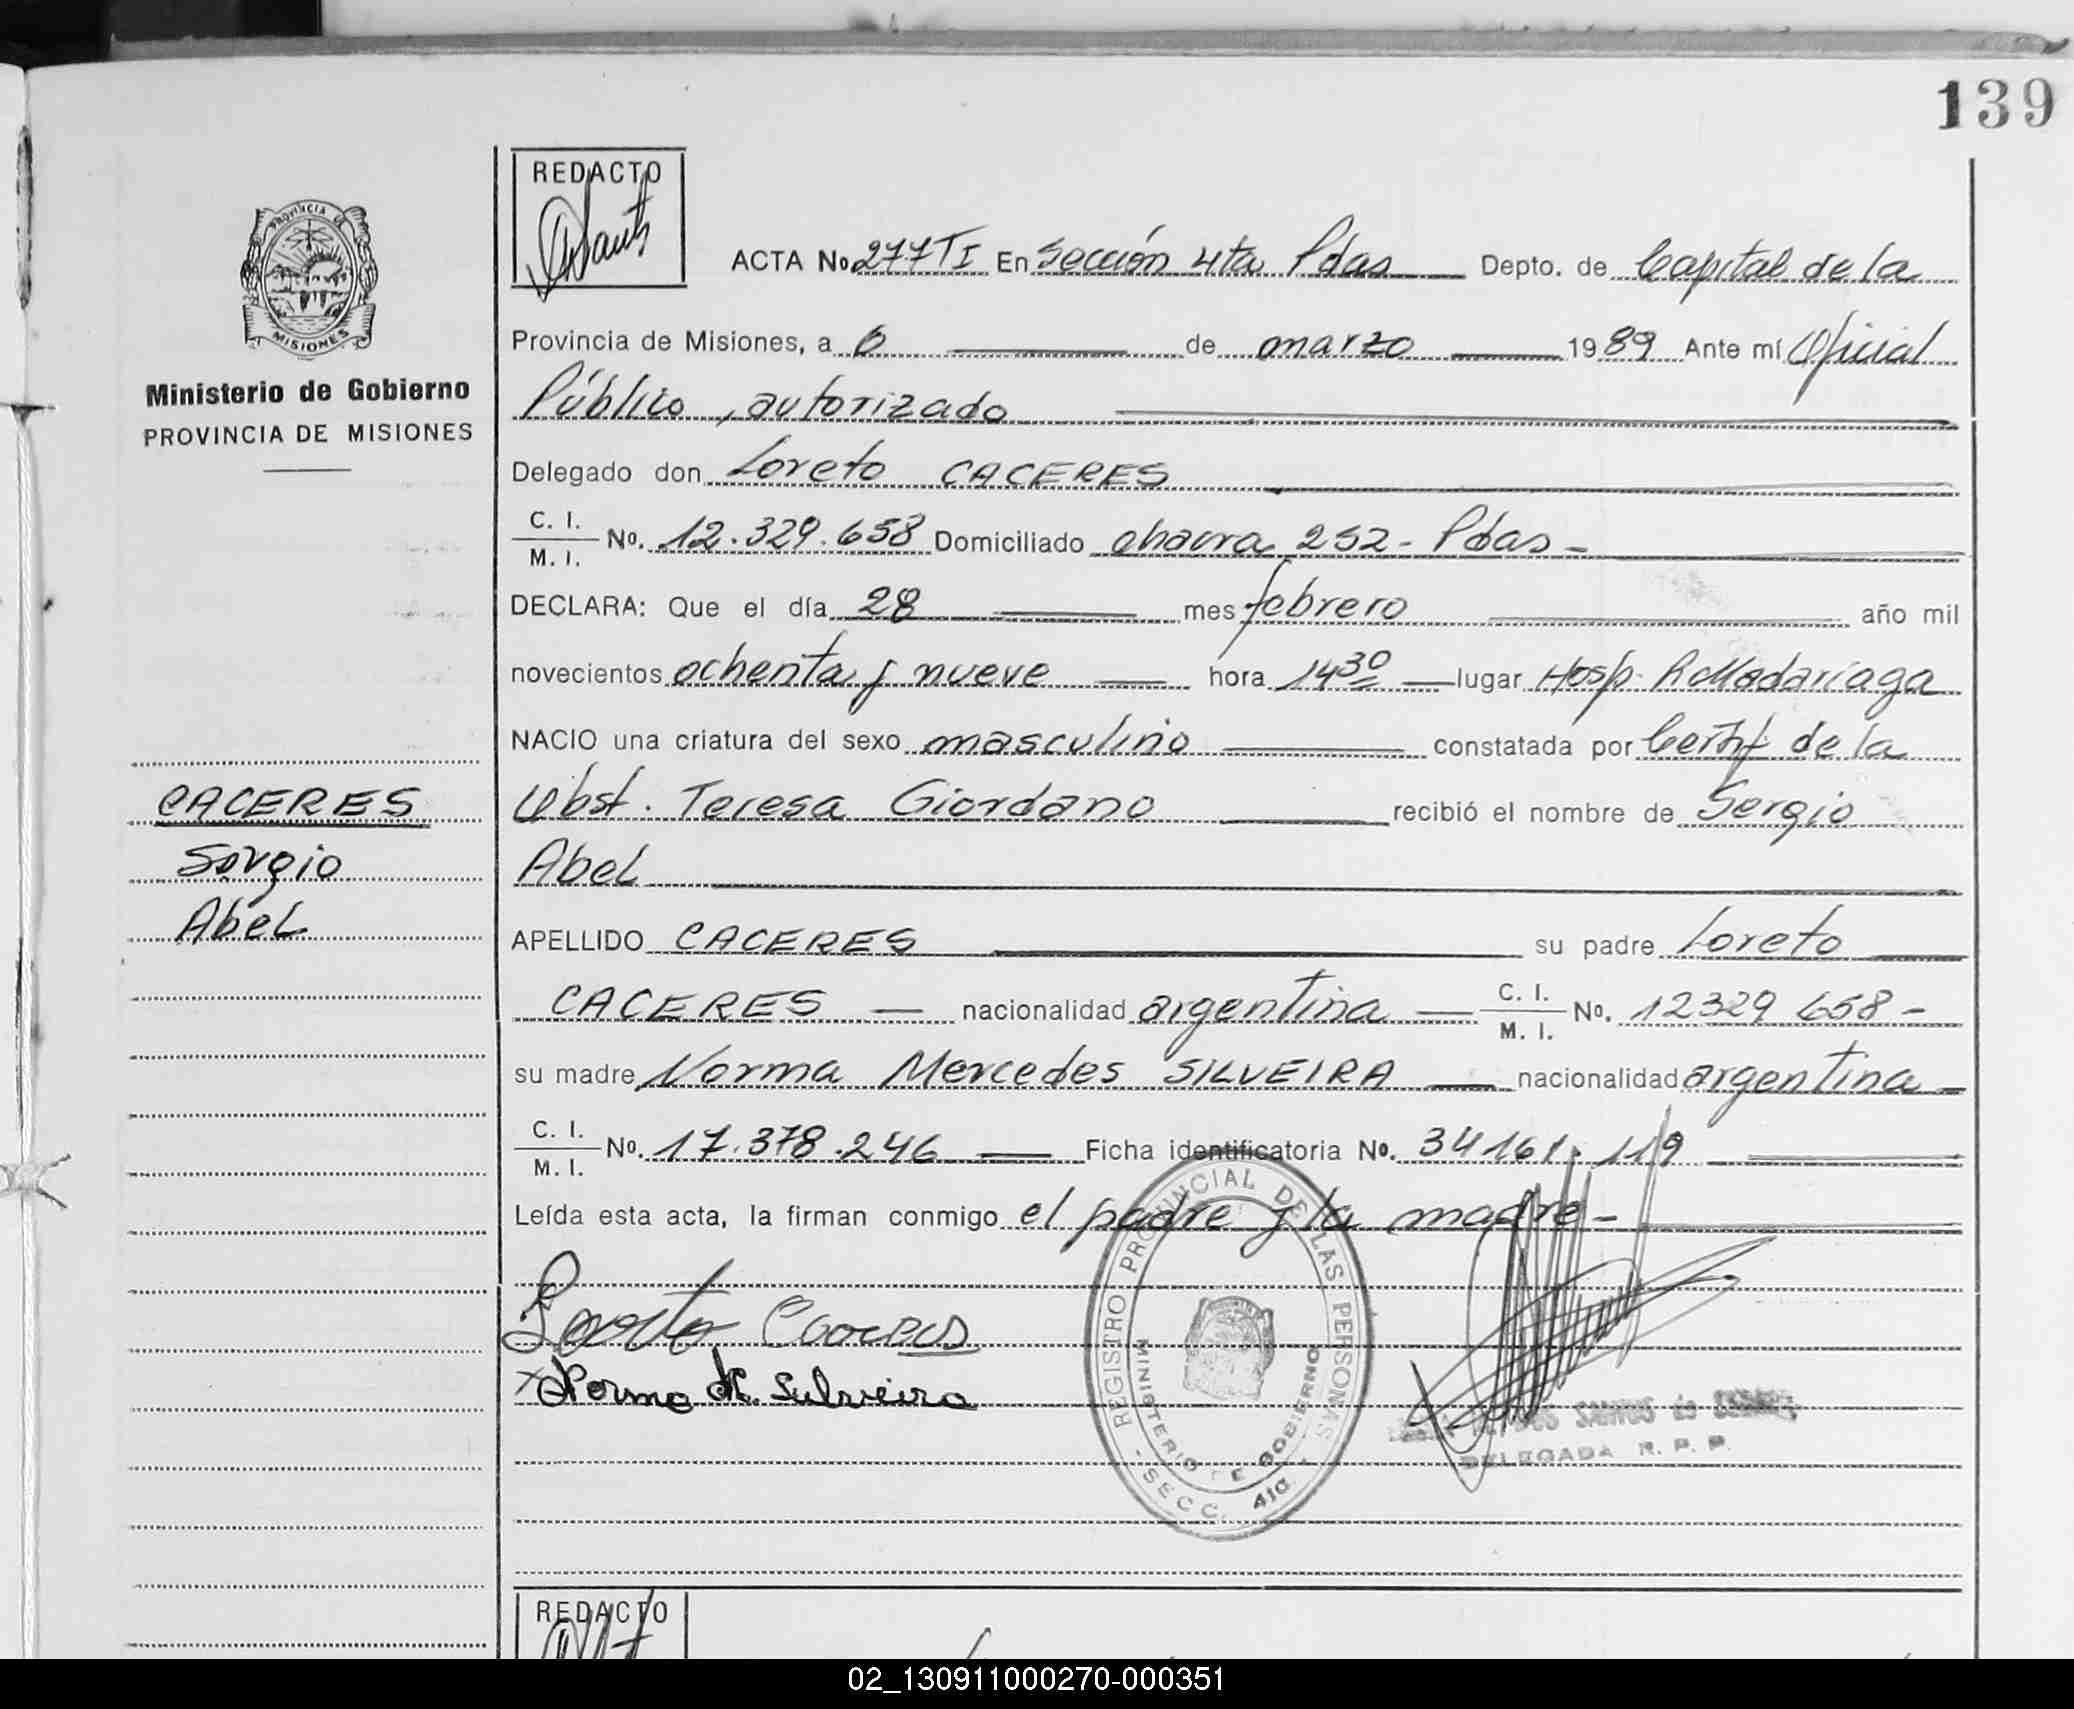 139
REDACTO
PROVINCIA DE
MISIONES
Ministerio de Gobierno
PROVINCIA DE MISIONES
CACERES
Sergio
Abel
ACTA No. 277 TI En Sección 4ta Pdas Depto. de Capital de la
Provincia de Misiones, a 6 de marzo 1989 Ante mí Oficial
Público, autorizado
Delegado don Loreto CACERES
C. I.
M. I. No. 12.329.658 Domiciliado chacra 252 - Pdas -
DECLARA: Que el día 28 mes febrero año mil
novecientos ochenta y nueve hora 14 30 lugar Hosp. R Madariaga
NACIO una criatura del sexo masculino constatada por Certif de la
Obst. Teresa Giordano recibió el nombre de Sergio
Abel
APELLIDO CACERES su padre Loreto
CACERES nacionalidad argentina C. I.
M. I. No. 12329 658 -
su madre Norma Mercedes SILVEIRA nacionalidad argentina
C. I.
M. I. No. 17.378.246 Ficha identificatoria No. 34161.119
Leída esta acta, la firman conmigo el padre y la madre -
Loreto Caceres
x Norma M. Silveira
REGISTRO PROVINCIAL DE LAS PERSONAS
MINISTERIO DE GOBIERNO
SECC. 4ta.
DELEGADA R. P. P.
REDACTO
02_130911000270-000351